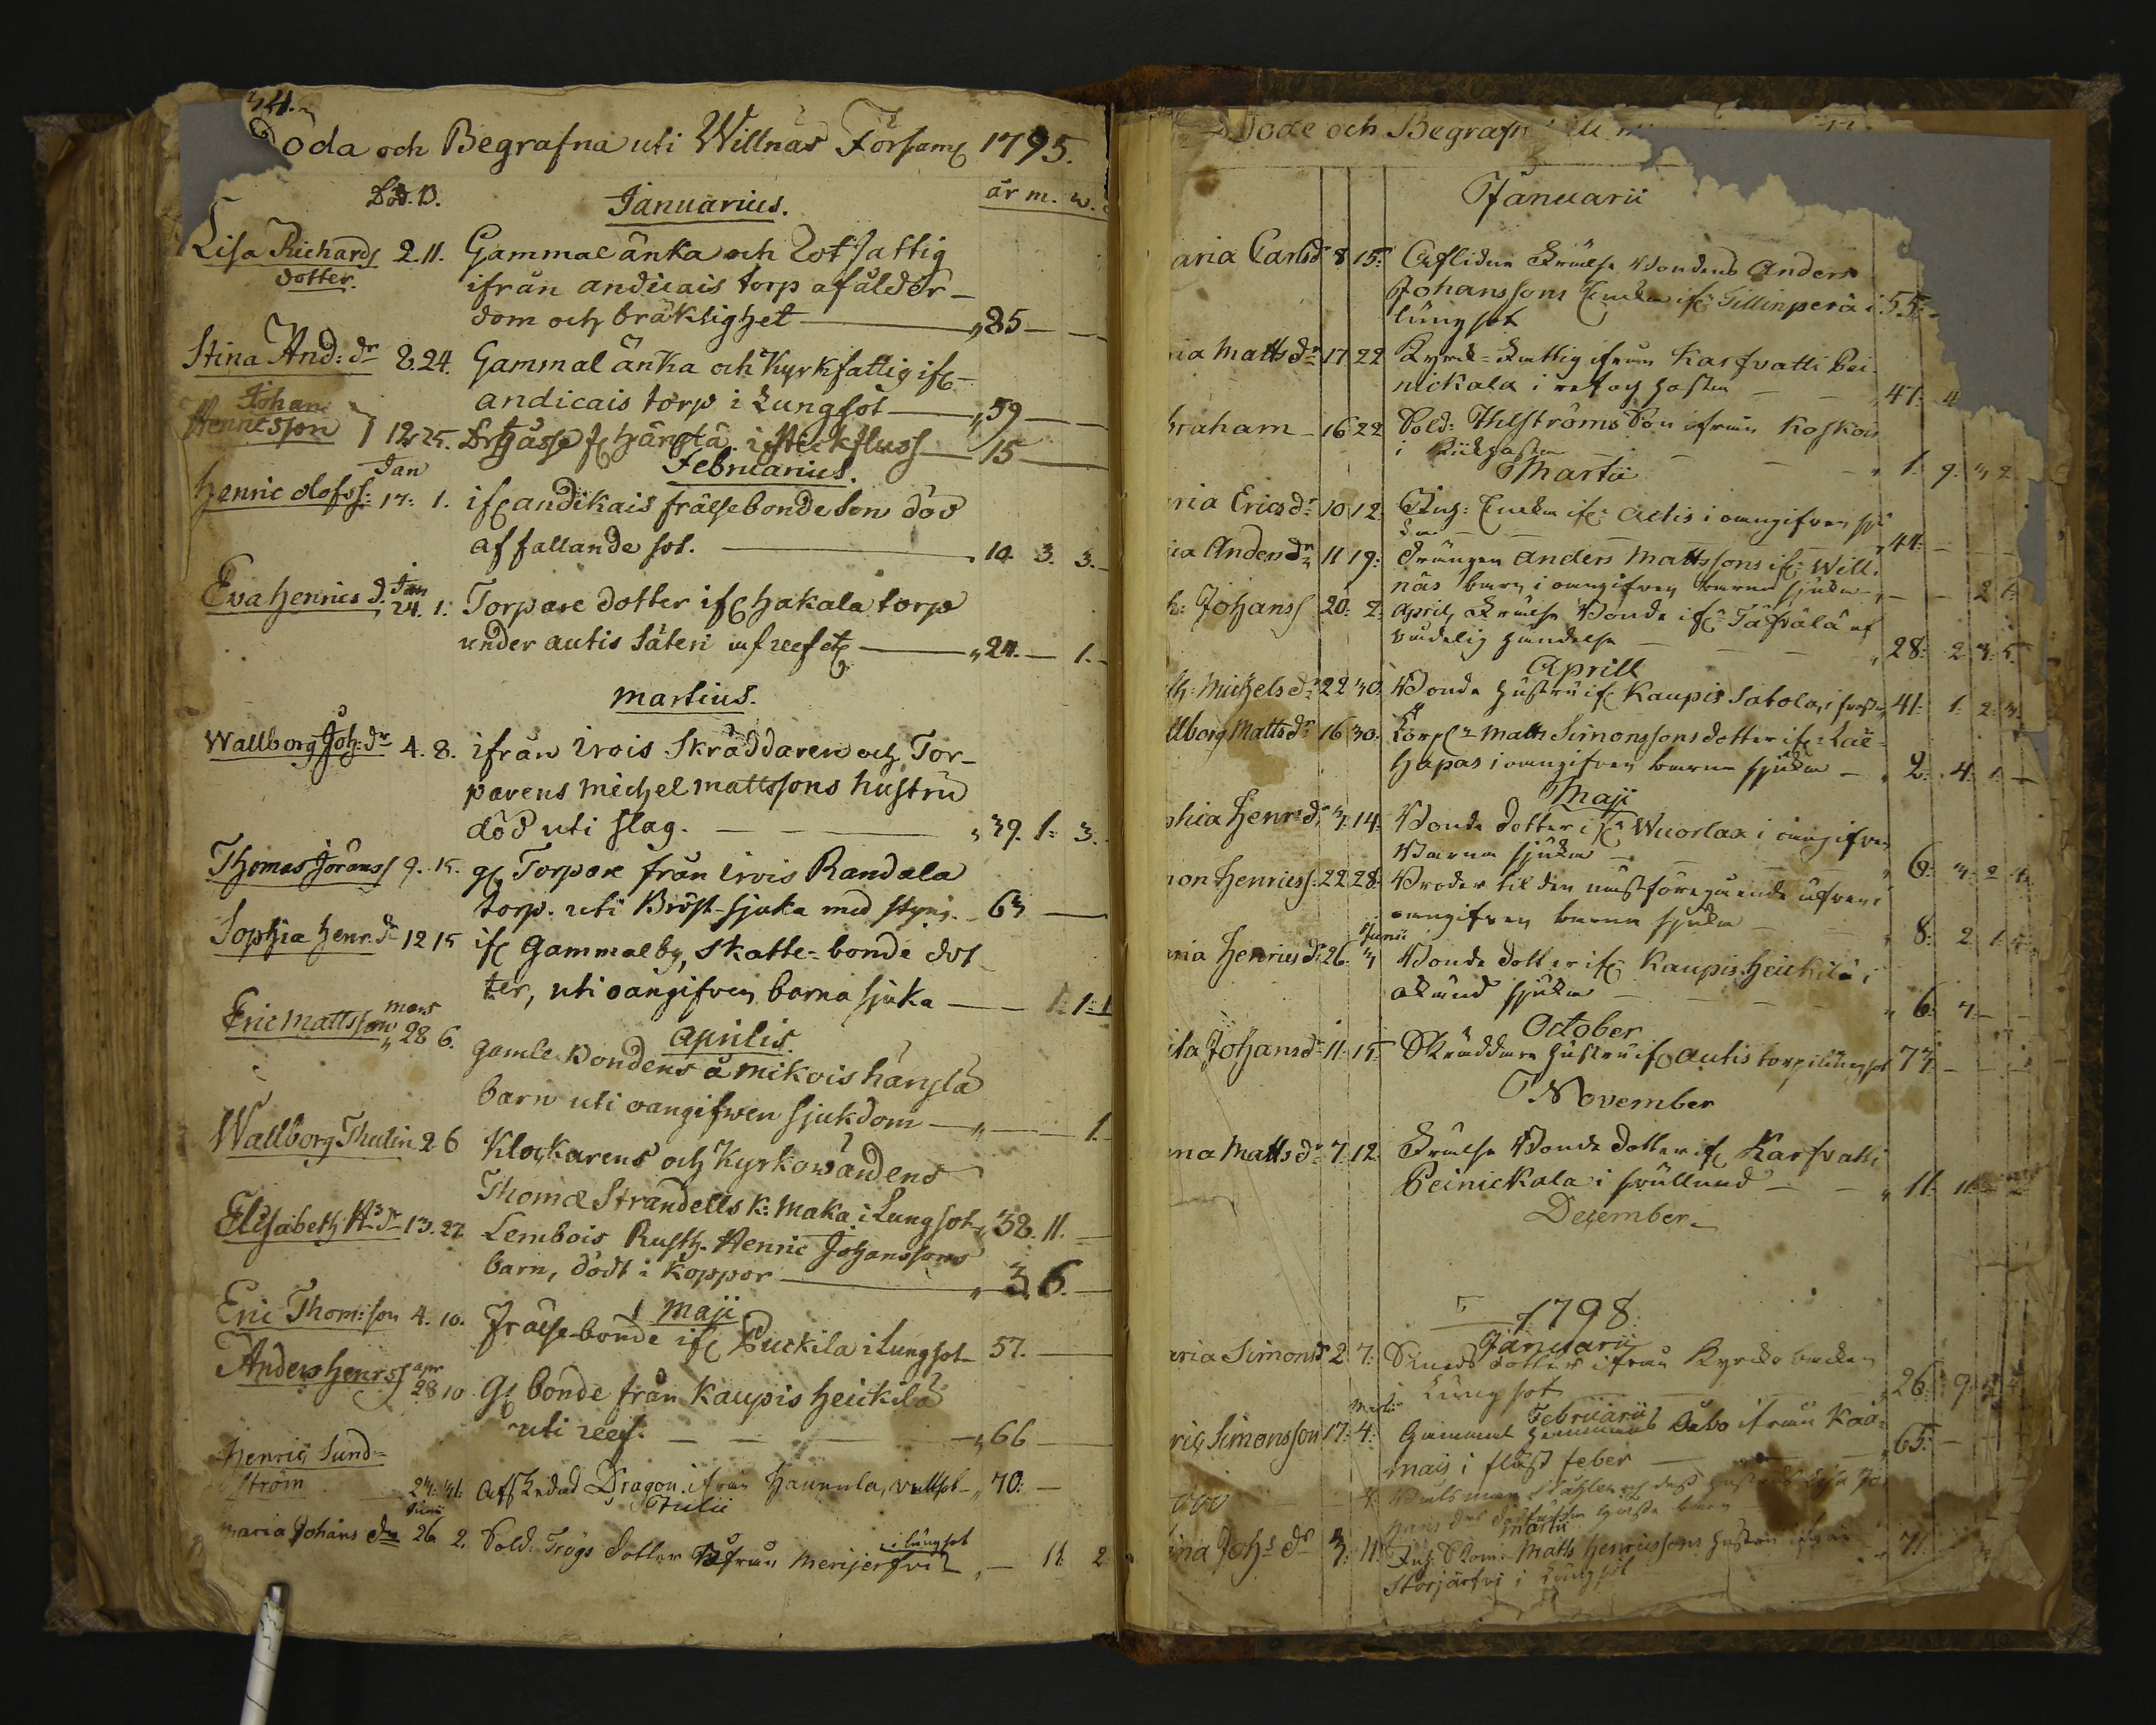 Döda och Begrafna uti Willnäs Församl 1795.
Död. B. Januarius. år m. w.
Lisa Richards 2. 11. Gammal änka och Rotfattig
dotter. ifrån andicais torp af ålder-
dom och bräklighet 85
Stina And: dr 8. 24. Gammal änka och Kyrkfattig if
andicais torp i Lungsot 59
Johan
Henricsson 12 25. Hänslä i Stickfluss 15
Februarius.
Henric Olofss: Jan 17: 1. if andikais frälsebonde Son död
af fallande sot. 10. 3. 3.
Eva Henrics d. Jan 24. 1. Torpare dotter if Hakala torp
under autis Säteri 24. 1.
Martius.
Wallborg Joh: dr 4. 8. ifrån irois Skräddaren och Tor-
parens Michel Mattssons hustru
död uti slag. 39. 1. 3.
Thomas Jöranss 9. 15. gl Torpare från irois Randala
torp. uti Bröst-sjuka med styng. 63
Sophia Henr. dr 12 15 if Gammalby, Skatte-bonde dot
ter, uti oangifven barna sjuka 1: 1: 1
Aprilis.
Eric Mattsson mars 28 6. gamle Bondens å Mikois hänslä
barn uti oangifwen sjukdom 1.
Wallborg Thulin 2 6 Klockarens och Kyrkowärdens
Thomæ Strandells K: Maka i Lungsot 38. 11.
Elisabeth H:dr 13. 27. Lembois Rusth. Henric Johanssons
barn, dödt i koppor 3 6.
Maji
Eric Thom:son 4. 10. Frälse-bonde if Puckila i Lungsot 57.
Anders Henrss apr 28 10 Gl bonde från Kaupis Heickilä
uti reef. 66
Henric Sund=
ström Afskedad Dragon ifrån Hannula, 70:
Julii
Maria Johans dr Junii 26 2. Sold: Trögs dotter ifrån Merijerfvi i lungsot 11 2
Döde och Begrafn
Januarii
aria Carlsdr 8 15: Aflidne Frälse Bondens Anders
Johanssons Enka if Tillinperä i 55
lungsot
ria Matts dr 17 22 Kyrck-Fattig ifrån Karfvatti Pei
nickala i ref och hosta 47: 4
braham 16 22 Sold: Thelströms Son ifrån Koskois
i Kikhosta 1. 9. 3 2
Martii
ria Erics dr 10 12 Inh: Enka if Autis i oangifven sju
ka 44:
ia Anders dr 11 19: Drängen Anders Mattssons if Will
näs barn i oangifven barna sjuka 2 6
h: Johanss 20. 2: April, Frälse Bonde if Täfvälä af
vådelig händelse 28: 2 3. 5.
Aprill
th: Michels dr 22 30. Bonde hustru if Kaupis Sabola, i frossa 41: 1: 2: 3
llborg Matts dr 16 30. Korpl Matts Simonssons dotter if Lai
hapas i oangifven barna sjuka 2: 4: 1:
Maji
phia Henr: dr 3: 14: Bonde dotter if Wuorlax i oangifven
Barna sjuka 6: 3: 2 4.
mon Henricss: 22 28: Broder til den näst föregående äfven i
oangifven barna sjuka 8: 2: 1: 5
aria Henrics dr 26. Junii 3 Bonde dotter if Kaupis Heickilä i
okänd sjuka 6: 7:
October
ita Johansdr 11. 15 Skräddare hustru if Autis torp i lungsot 73.
November
na Matts dr 7. 12. Frälse Bonde dotter if Karfvatti
Peinickala i 11: 11:
December
1798.
Januarii
aria Simonsdr 2 7: dotter ifrån Kyrcko backen
i Lungsot 26: 9:
Februarii
ric Simonsson 17: Martii 4: Gammal ifrån Kaa
mais i fläst feber 65:
Martii
ina Johs dr 3: 11: Inh: Matts Henricssons hustru ifrån 71.
Storjärfvi i Lungsot